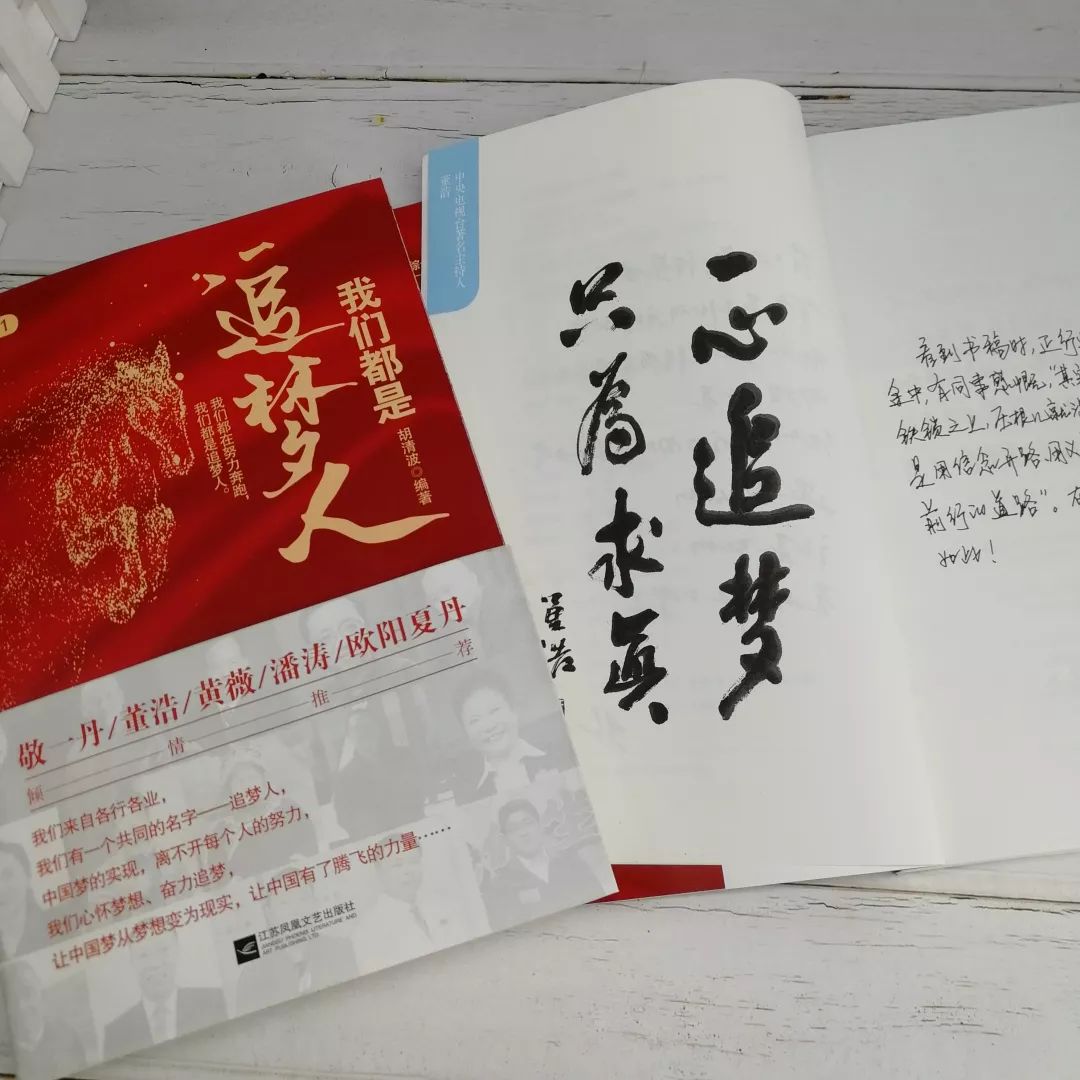 1
我们都是
追梦人
我们都在努力奔跑,
我们都是追梦人。
胡清波◎编著
敬一丹/董浩/黄薇/潘涛/欧阳夏丹
倾情推荐
我们来自各行各业,
我们有一个共同的名字——追梦人,
中国梦的实现,离不开每个人的努力,
我们心怀梦想、奋力追梦,
让中国梦从梦想变为现实,让中国有了腾飞的力量……
江苏凤凰文艺出版社
JIANGSU PHOENIX LITERATURE AND
ART PUBLISHING, LTD
中央电视台著名主持人
董浩
一心追梦
只为求真
董浩
看到书稿时,正行
金中,有同事感慨,“其实
铁锁之上,压根儿就没
是用信念开路,用义
前行的道路”。在
如此!